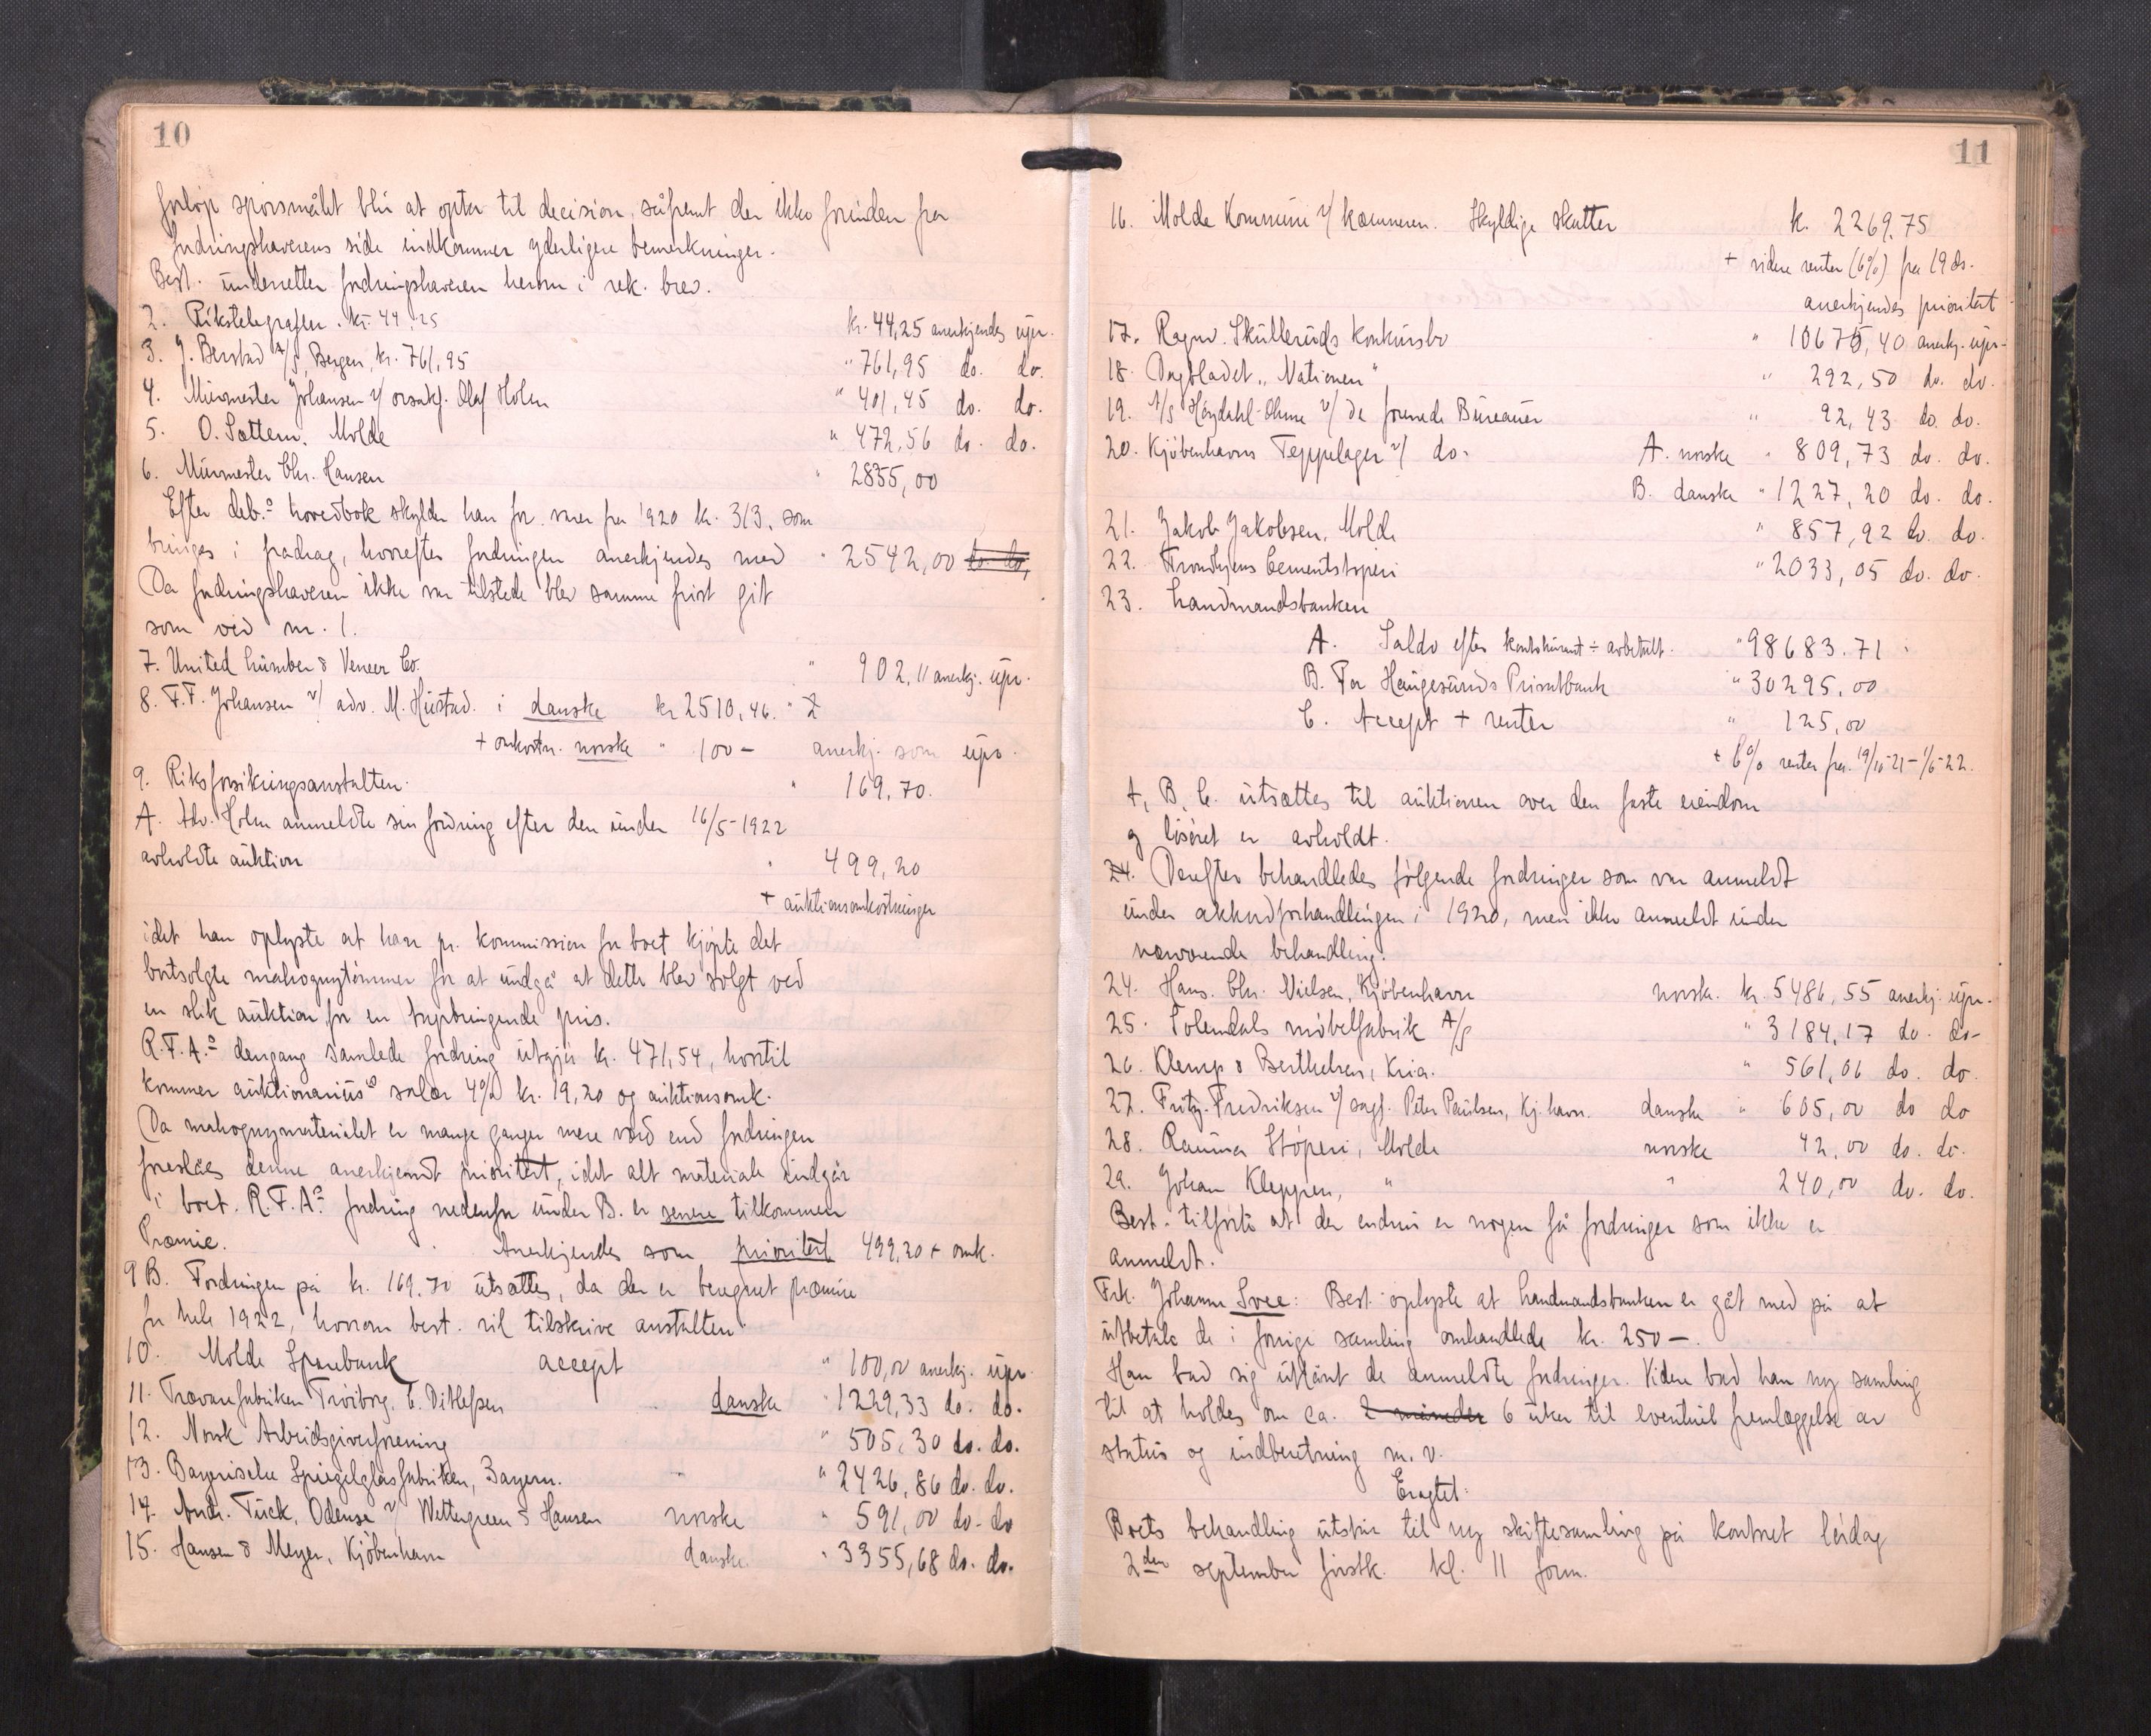 10
forløp spørsmålet blir at optar til decision, såfremt der ikke forinden fra
fordringshaverens side indkommer yderligere bemerkninger.
Best. underretter fordringshaveren herom i rek. brev.
2. Rikstelegrafen. kr. 44,25 kr. 44,25 anerkjendes upr.
3. J. Berstad A/S, Bergen, kr. 761,95 " 761,95 do. do.
4. Murmester Johansen v/ orsakf. Olaf Holm " 401,45 do. do.
5. O. Sættem, Molde " 472,56 do. do.
6. Murmester Chr. Hansen " 2855,00
Efter deb.s hovedbok skylder han for varer fra 1920 kr. 313, som
bringes i fradrag, hvorefter fordringen anerkjendes med " 2542,00 do. do.
Da fordringshaveren ikke var tilstede blev samme frist git
som ved nr. 1.
7. United Lumber & Veneer Co. " 902,11 anerkj. upr.
8. F.F. Johansen v/ adv. M. Hustad. i danske kr 2510,46. "
+ omkostn. norske " 100- anerkj. som upr.
9. Riksforsikringsanstalten. " 169,70.
A. Adv. Holm anmeldte sin fordring efter den under 16/5-1922
avholdte auktion " 499,20
+ auktionsomkostninger
idet han oplyste at han pr. kommission for boet kjøpte det
bortsolgte mahognytømmer for at undgå at dette blev solgt ved
en slik auktion for en bagatelmæssig pris.
R.F.A.s dengang samlede fordring utgjør kr. 471,54, hvortil
kommer auktionarius' salær 4% kr. 19,20 og auktionsomk.
Da mahognymaterialet er mange ganger mere værd end fordringen
foreslåes denne anerkjendt prioritert, idet alt materiale indgår
i boet. R.F.A.s fordring nedenfor under B. er senere tilkommen
Præmie. Anerkjendes som prioritert 499,20 + omk.
9 B. Fordringen på kr. 169,70 utsættes, da der er beregnet præmie
for hele 1922, hvorom best. vil tilskrive anstalten.
10. Molde Sparebank accept " 100,00 anerkj. upr.
11. Trævarefabriken Trøiborg, C. Ditlefsen danske " 1229,33 do. do.
12. Norsk Arbeidsgiverforening " 505,30 do. do.
13. Bayerische Spiegelglasfabriken, Bayern. " 2426,86 do. do.
14. Andr. Tück, Odense v/ Wettergreen & Hansen norske " 591,00 do. do
15. Hansen & Meyer, Kjöbenhavn danske " 3355,68 do. do.
11
16. Molde Kommune v/ kæmneren. Skyldige skatter k. 2269,75
+ videre renter (6%) fra 19 ds.
anerkjendes prioritert
17. Ragnv. Skulleruds konkursbo " 10675,40 anerkj. upr.
18. Dagbladet "Nationen" " 292,50 do. do.
19. A/S Høydahl-Ohme v/ de forenede Bureauer " 92,43 do. do.
20. Kjöbenhavns Teppelager v/ do. A. norske " 809,73 do. do.
B. danske " 1227,20 do. do.
21. Jakob Jakobsen, Molde " 857,92 do. do.
22. Trondhjems Cementstøperi " 2033,05 do. do.
23. Landmandsbanken
A. Saldo efter kontokurant ÷ avbetalt. " 98683.71
B. For Haugesunds Privatbank " 30295,00
C. Accept + renter " 125,00
+ 6% renter fra 19/10-21 - 1/6-22.
A, B, C. utsættes til auktionen over den faste eiendom
og løsøret er avholdt.
24. Derefter behandledes følgende fordringer som var anmeldt
under akkordforhandlingen i 1920, men ikke anmeldt under
nærværende behandling:
24. Hans. Chr. Nielsen, Kjöbenhavn norsk. kr. 5486,55 anerkj. upr.
25. Solemdals møbelfabrik A/S " 3184,17 do. do-
26. Klemp & Berthelsen, Kria. " 561,06 do. do.
27. Fritz. Fredriksen v/ sagf. Peter Paulsen, Kj.havn. danske " 605,00 do do
28. Rauma Støperi, Molde norske 42,00 do. do.
29. Johan Kleppen, " " 240,00 do. do.
Best. tilførte at der endnu er nogen få fordringer som ikke er
anmeldt.
Frk. Johanne Svee: Best. oplyste at Landmandsbanken er gåt med på at
utbetale de i forrige samling omhandlede kr. 250-.
Han bad sig utlånt de anmeldte fordringer. Videre bad han ny samling
til at holdes om ca. 2 måneder 6 uker til eventuel fremlæggelse av
status og indberetning m. v.
Eragtet:
Boets behandling utstår til ny skiftesamling på kontoret lørdag
2den september førstk. kl. 11 form.